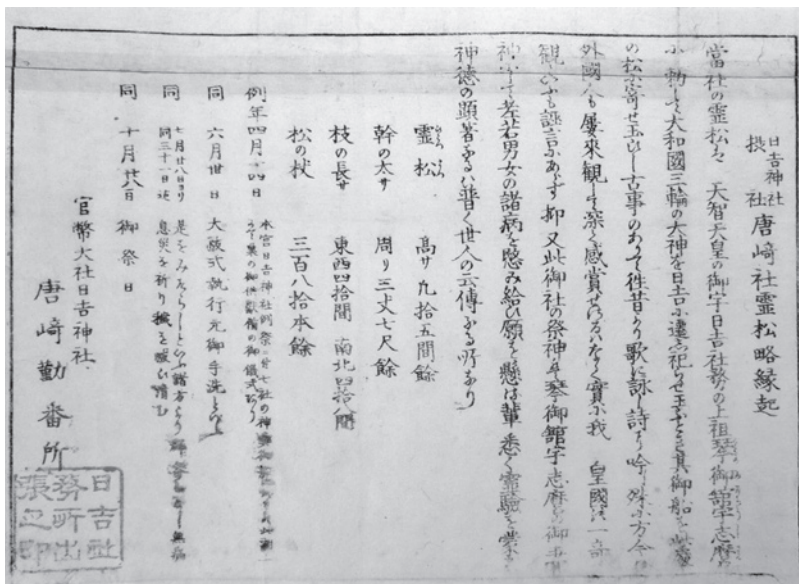 日吉神社
摂社
唐﨑社霊松略縁起
當社の霊松ハ 天智天皇の御宇日吉社務の上祖琴御舘宇志麿
勅して大和國三輪の大神を日吉に遷し祀らせ玉ふとき其御船を此處
の松に寄せ玉ひし古事のあつて徃昔より歌に詠し詩に吟し殊に方今ハ
外國人も屢來観して深く感賞せさるハなく實に我 皇國の一奇
観といふも誣言にあらず抑又此御社の祭神ハ琴御舘宇志麿の御妻
神にて老若男女の諸病を愍み給ひ願を懸る輩悉く霊驗を蒙り
神徳の顕著なるハ普く世人の云傳ふる所なり
霊松 高サ 九拾五間餘
幹の太サ 周り三丈七尺餘
枝の長サ 東西四拾間 南北四拾八間
松の杖 三百八拾本餘
例年四月十四日 本宮日吉神社例祭
同 六月卅日 大祓式執行
同 七月廿八日より
同三十一日迄
同 十月廿八日 御祭日
官幣大社日吉神社
唐﨑勤番所
日吉社
務所出
張之印